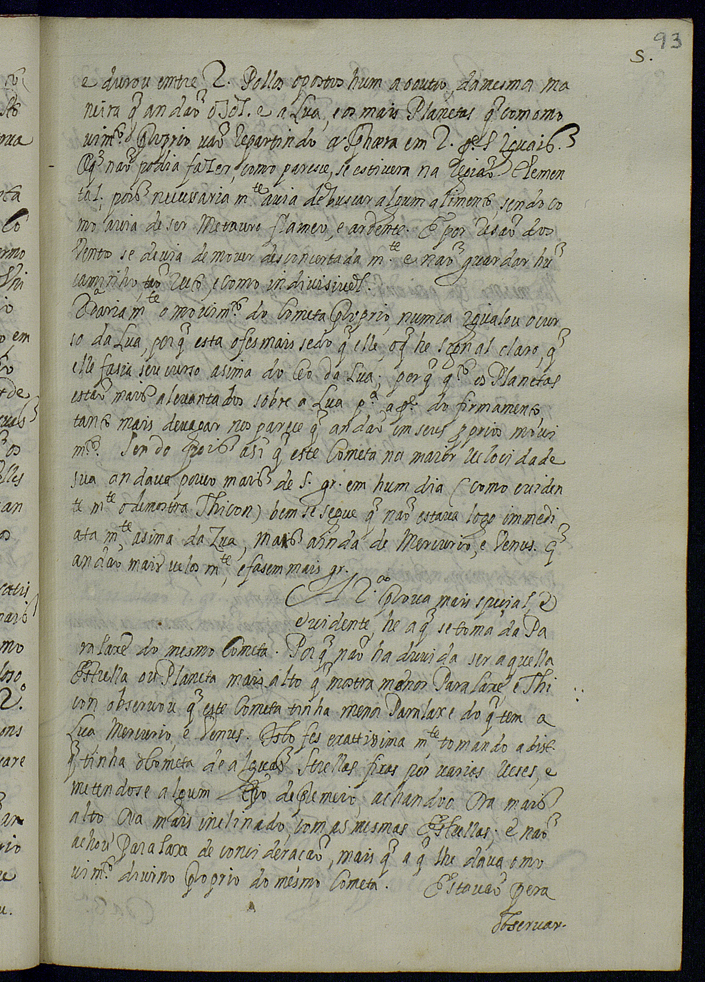 93
S.
e durou entre 2. Pollos opostos hum ao outro da mesma ma
neira q̃ andaõ o Sol. e a Lua, e os mais Planetas q̃ com o mo
uim.to proprio uaõ repartindo a Sphæra em 2. p.tes Iguais.
Oq̃ naõ podia fazer, como parece, se estiuera na Regiaõ Elemen
tal; pois necessaria m.te auia de buscar algum alimento, sendo co
mo auia de ser Metauro flameo, e ardente. E por rasaõ dos
Vento se deuia de mouer desconcertada m.te e naõ guardar hũ
caminho taõ certo, e como indiuisiuel.
Otariam.te o mouim.to do Cometa proprio, nunca igualou o cur
so da Lua, porq̃ esta o fes mais sedo q̃ elle, oq̃ he sinal claro, q̃
elle fasia seu curso asima do Ceo da Lua; porq̃ q.to os Planetas
estaõ mais aleuantados sobre a Lua p.a a p.te do firmamento
tanto mais deuagar nos parece q̃ andaõ em seus proprios moui
m.tos. Sendo pois asi q̃ este Cometa na maior uelocidade
sua andaua pouco mais de 5. gr. em hum dia (como euiden
te m.te o demostra Thicon) bem se segue q̃ naõ estaua logo immedi
ata m.te asima da Lua, mas ainda de Mercurio, e Venus. q̃
andaõ mais ueloz m.te, e fasem mais gr.
A 2.a proua mais special, e
euidente he a q̃ se toma da Pa
ralaxe do mesmo Cometa. Porq̃ naõ ha duuida ser aquella
Estrella ou Planeta mais alto q̃ mostra menor Paralaxe e Thi
con obseruou q̃ este Cometa tinha menor Paralaxe do q̃ tem a
Lua Mercurio e Venus. Isto fes exactissima m.te tomando a dist.
q̃ tinha o Cometa de algũas Strellas fixas por varios ueses, e
metendose algum tpõ de premeio, achandoo ora mais
alto ora mais inclinado, com as mesmas Estrellas; e naõ
achou Paralaxe de consideracaõ, mais q̃ a q̃ lhe daua o mo
uim.to diurno proprio do mesmo Cometa. Estauaõ pera
obseruar-